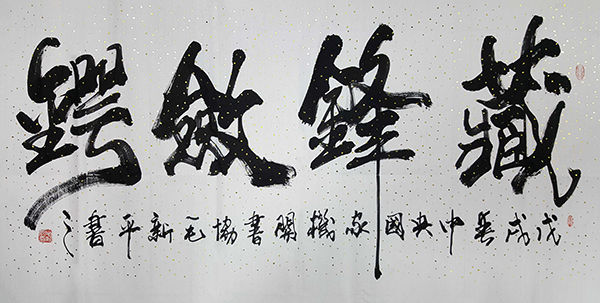 藏鋒斂鍔
戊戌春中央國家機關書協毛新平書之